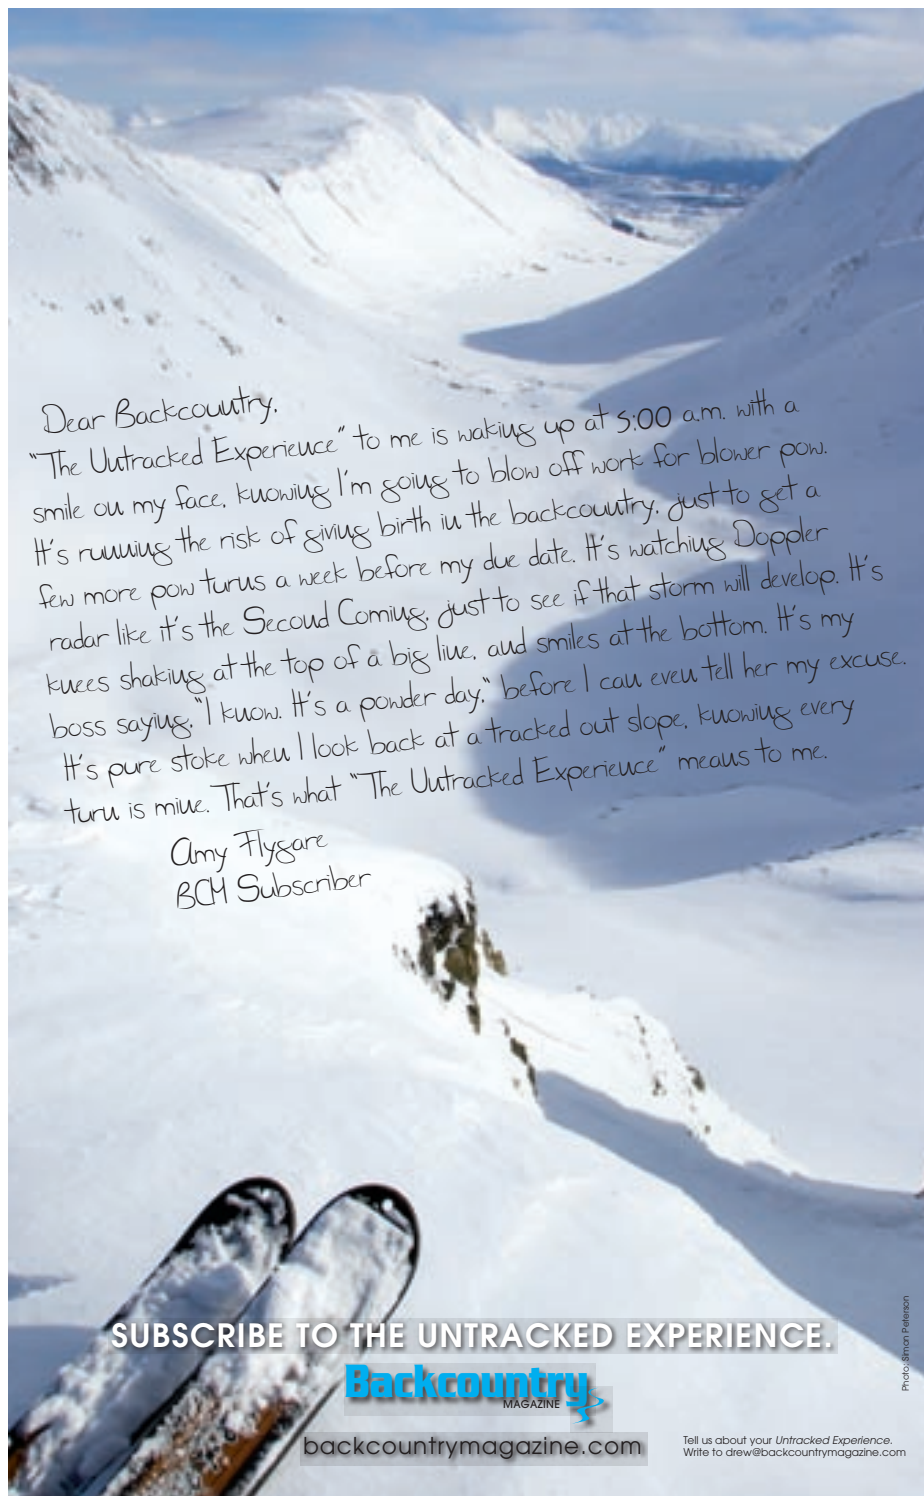 Dear Backcountry,
"The Untracked Experience" to me is waking up at 5:00 a.m. with a
smile on my face, knowing I'm going to blow off work for blower pow.
It's running the risk of giving birth in the backcountry, just to get a
few more pow turns a week before my due date. It's watching Doppler
radar like it's the Second Coming, just to see if that storm will develop. It's
knees shaking at the top of a big line, and smiles at the bottom. It's my
boss saying, "I know. It's a powder day," before I can even tell her my excuse.
It's pure stoke when I look back at a tracked out slope, knowing every
turn is mine. That's what "The Untracked Experience" means to me.
Amy Flygare
BCM Subscriber
SUBSCRIBE TO THE UNTRACKED EXPERIENCE.
Backcountry
MAGAZINE
backcountrymagazine.com
Tell us about your Untracked Experience.
Write to drew@backcountrymagazine.com
Photo: Simon Peterson